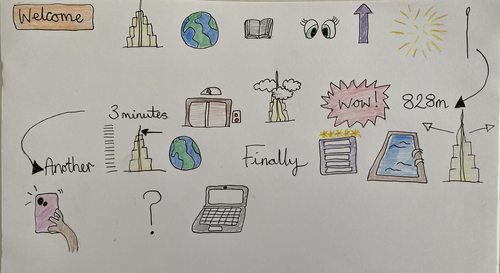 Welcome
3 minutes
WOW!
828m
Another
Finally
?